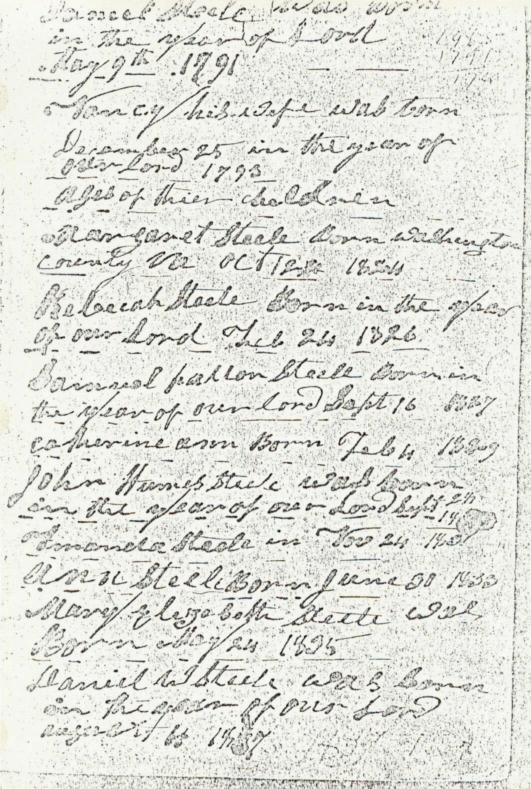 Daniel Steele was born
in the year of Lord
May 9th 1791
Nancy his wife was born
December 25 in the year of
our Lord 1793
Ages of thier children
Margaret Steele Born Washington
county Va Oct 1824
Rebecah Steele Born in the year
of our Lord Feb 24 1826
Samuel patton Steele Born in
the year of our lord Sept 16 1827
catherine ann Born Feb 4 1829
John Humes Steele was born
in the year of our Lord Sept 24
Amanda Steele in Nov 24
Ann Steele Born June 30 1833
Mary Elizabeth Steele was
Born May 24 1835
Daniel W Steele was Born
in the year of our Lord
august 16 1837